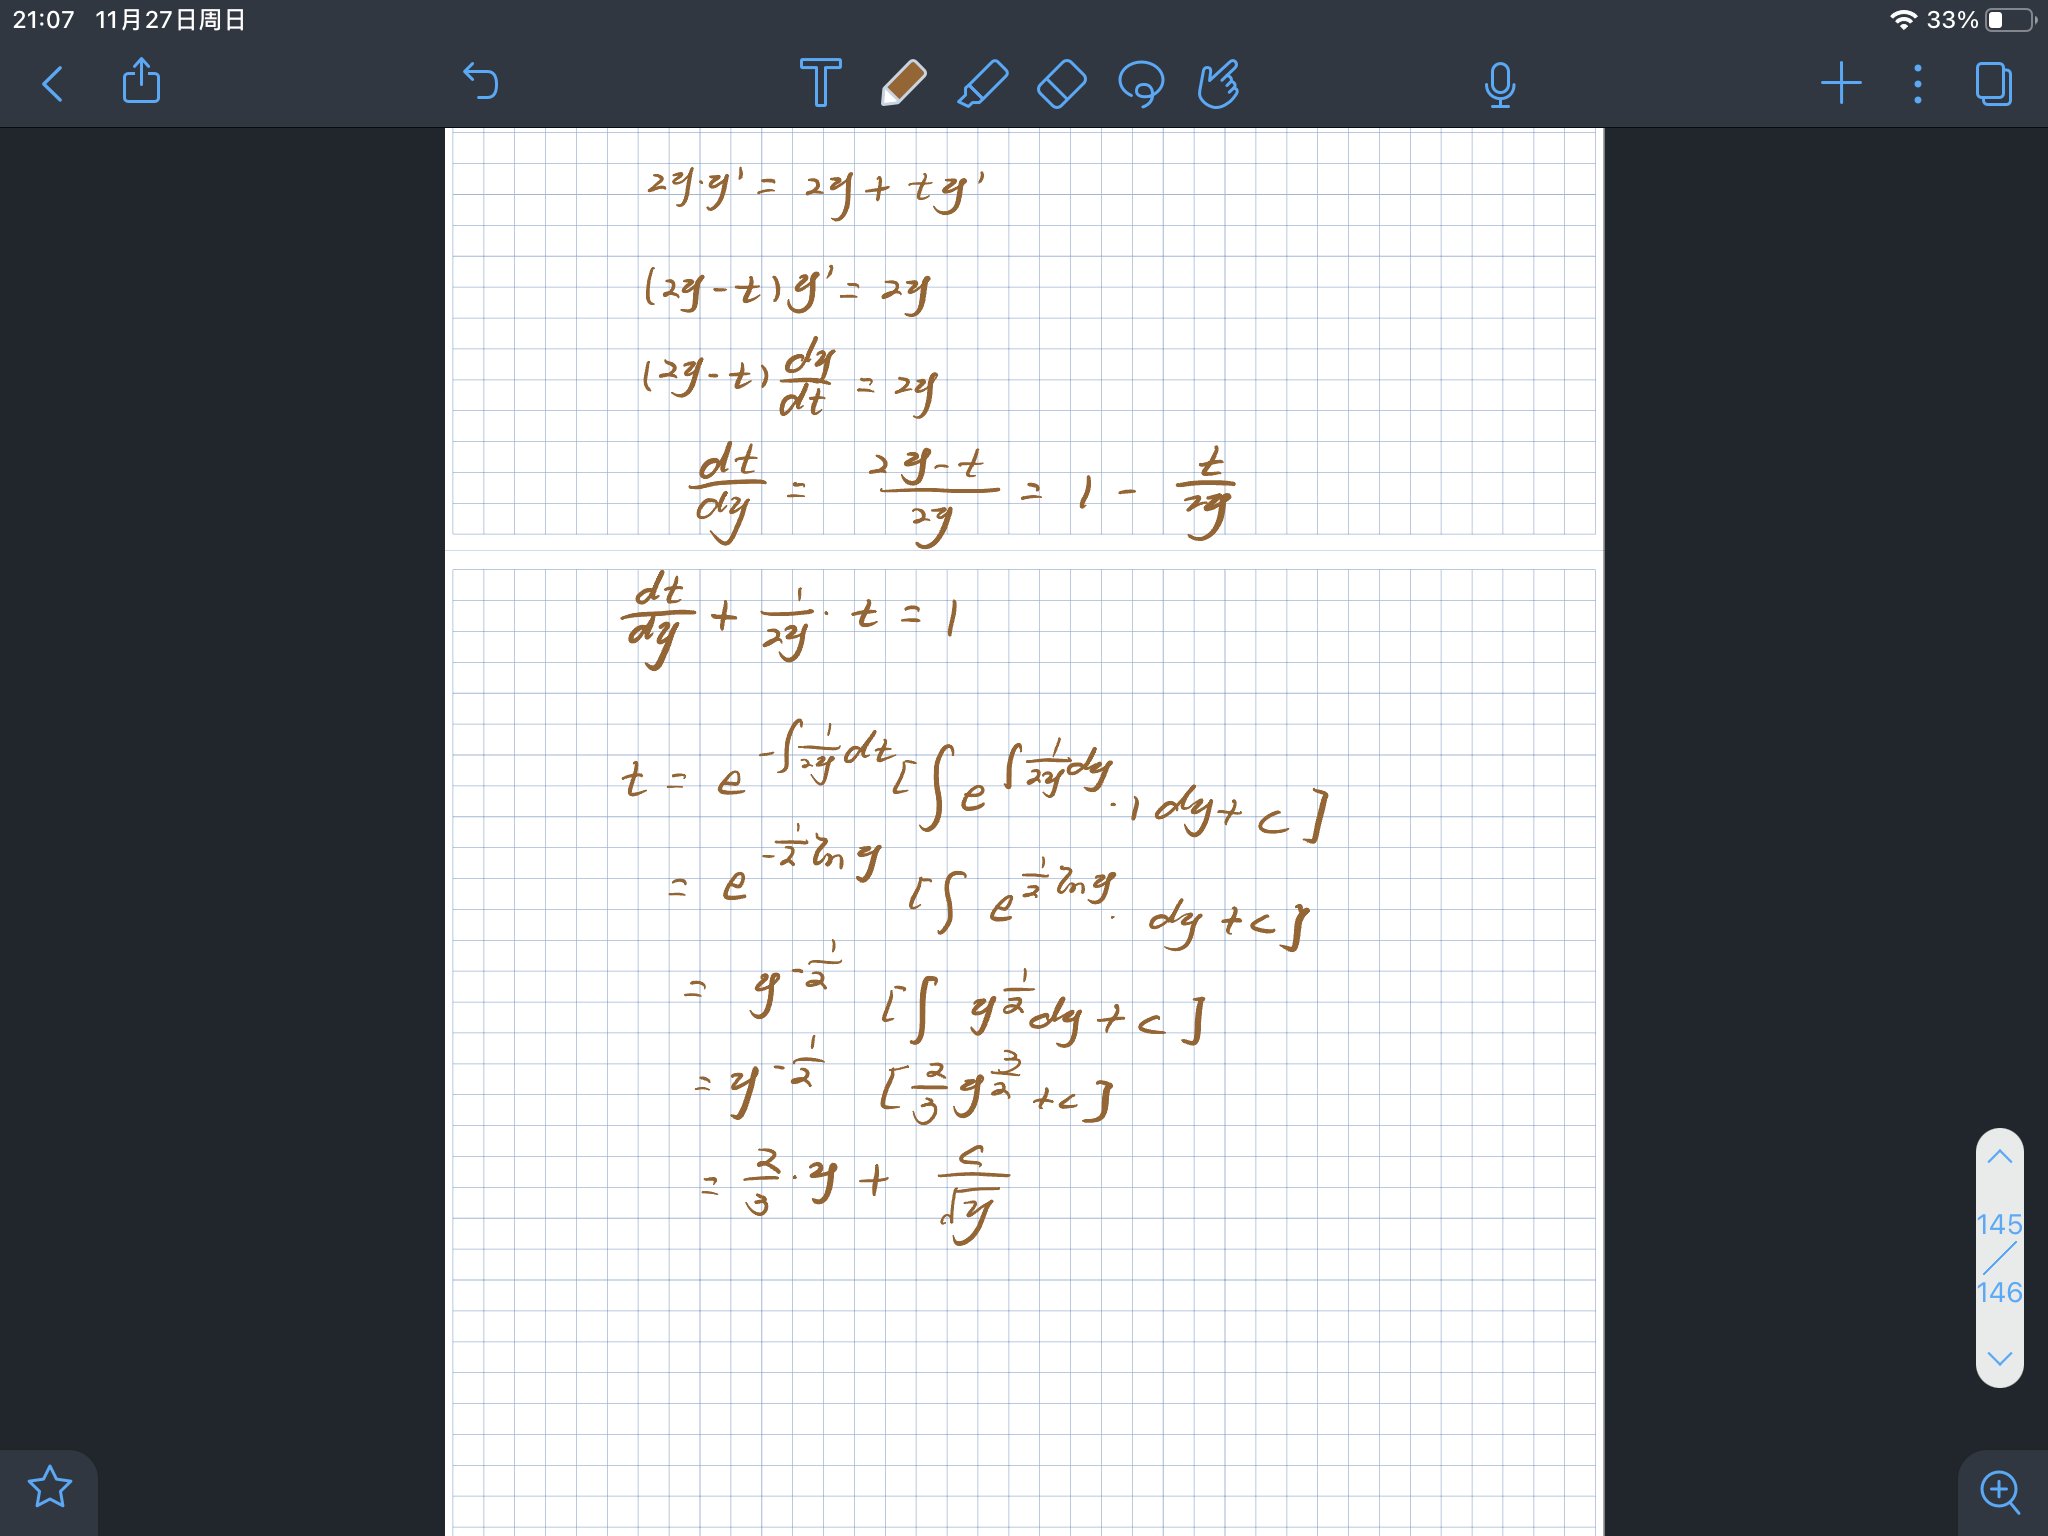 21:07 11月27日周日 33%
2y·y' = 2y + ty'
(2y-t)y' = 2y
(2y-t) dy/dt = 2y
dt/dy = (2y-t)/2y = 1 - t/2y
dt/dy + 1/2y · t = 1
t = e^(-∫ 1/2y dt) [∫ e^(∫ 1/2y dy) · 1 dy + c]
= e^(-1/2 ln y) [∫ e^(1/2 ln y) · dy + c]
= y^(-1/2) [∫ y^(1/2) dy + c]
= y^(-1/2) [2/3 y^(3/2) + c]
= 2/3 · y + c/√y
145
146